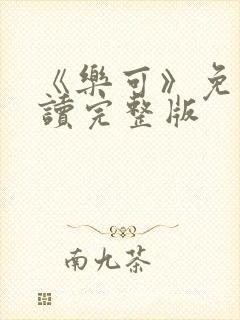 《樂可》免
讀完整版
南九茶